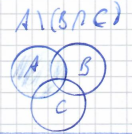 A\(B∩C)
A
B
C